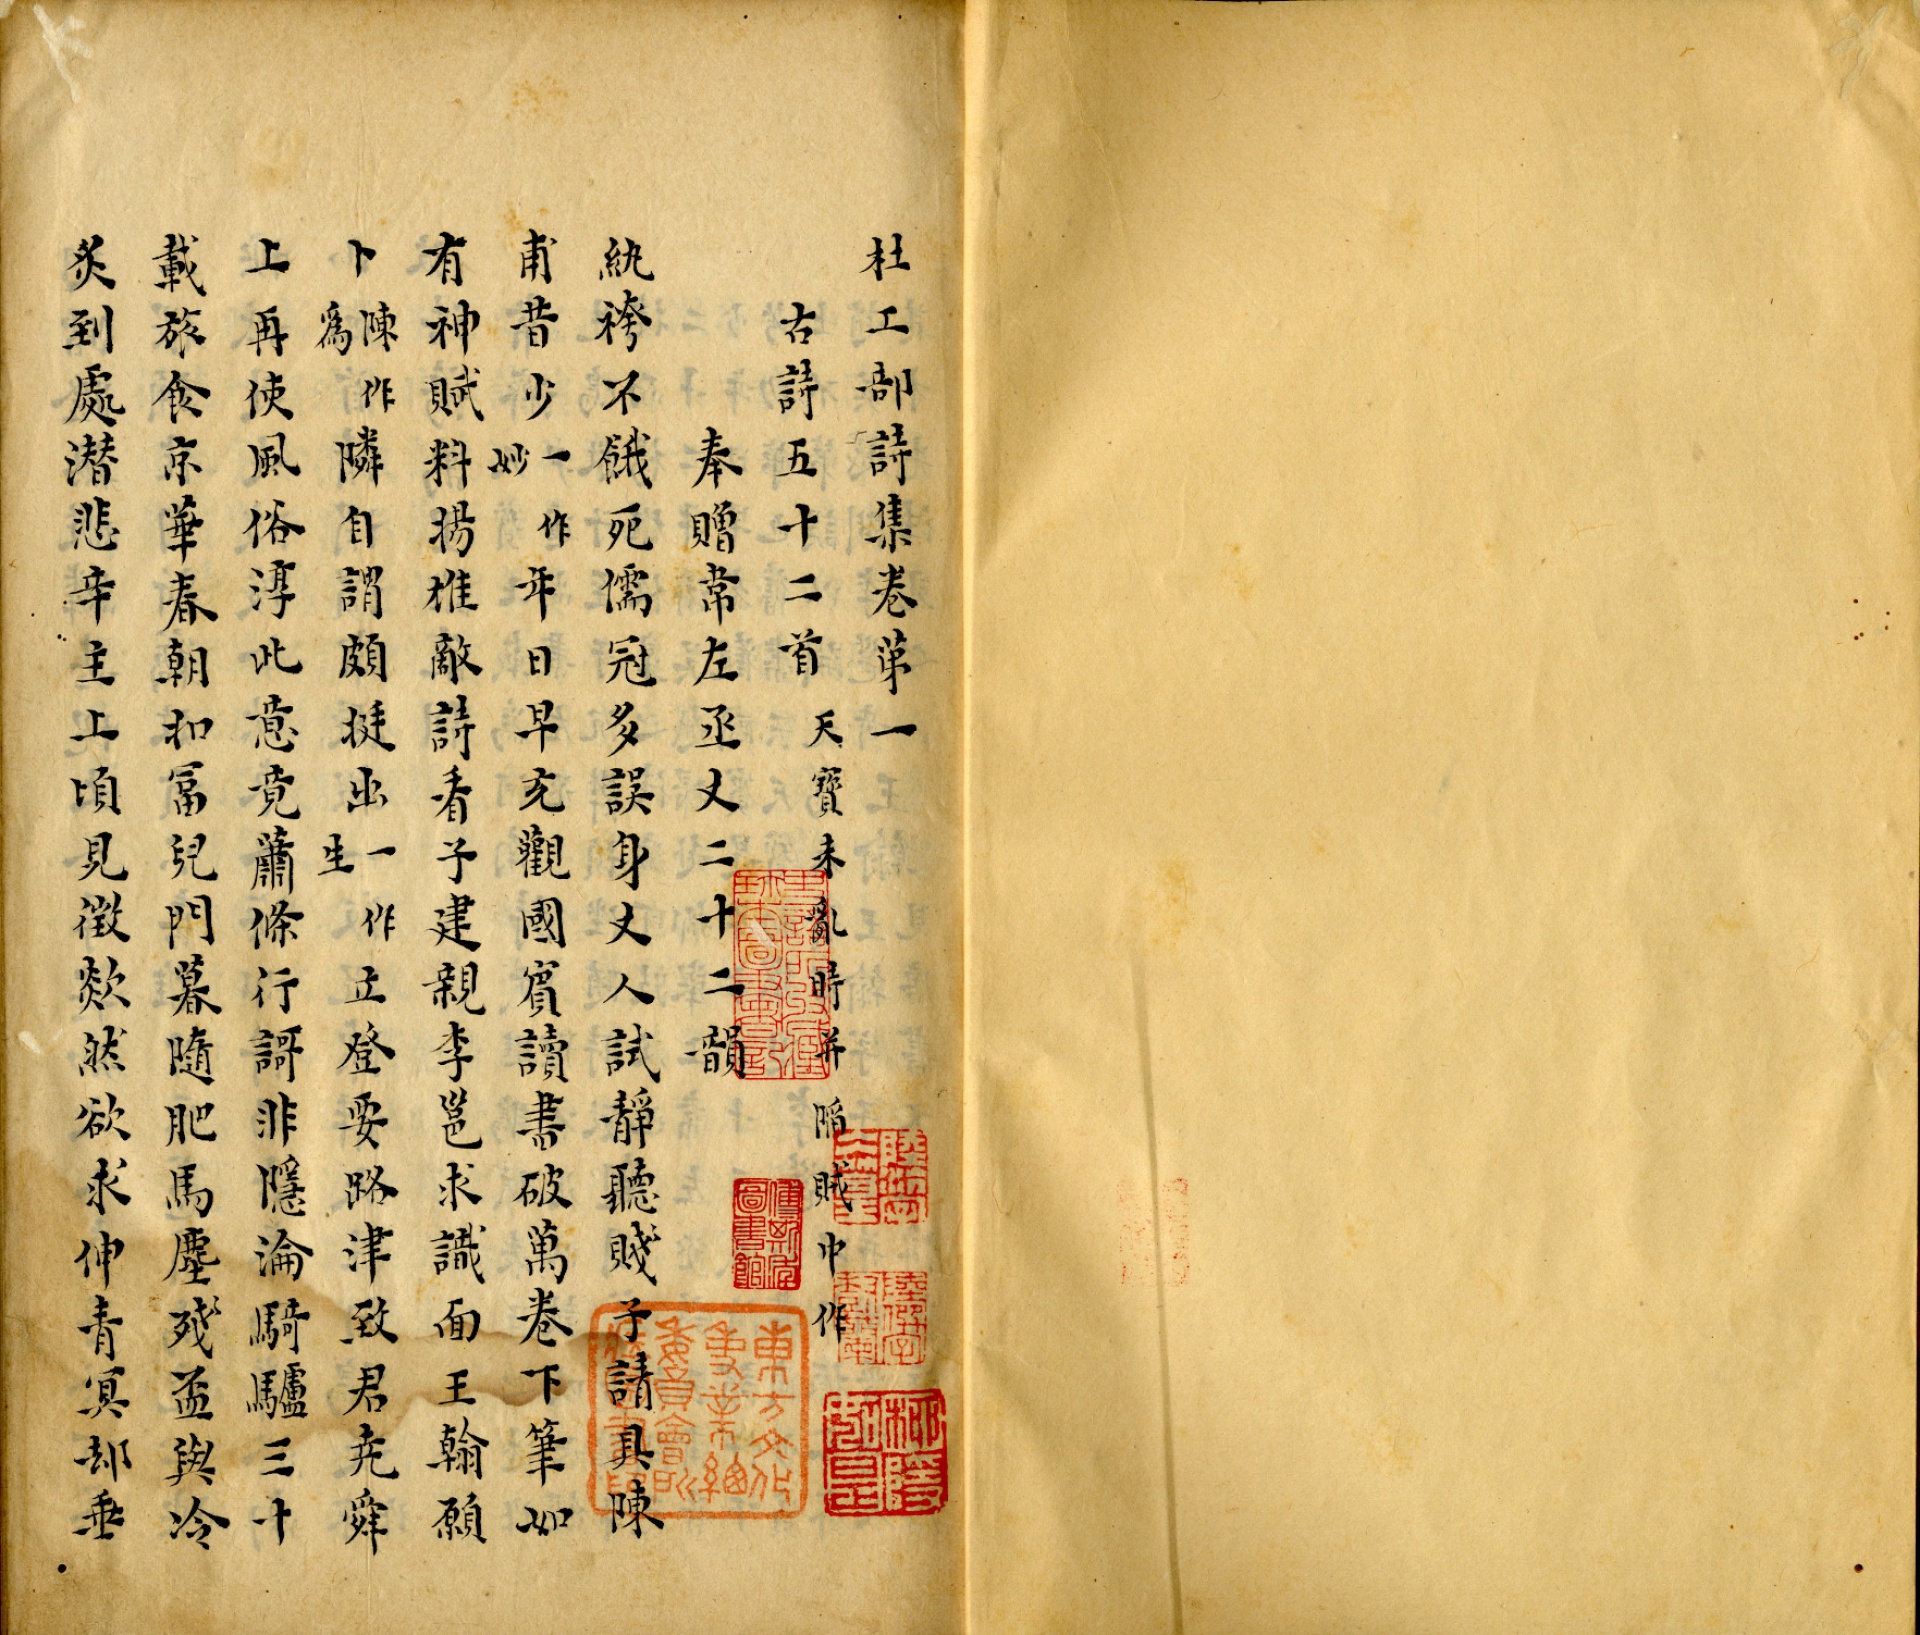 杜工部詩集卷第一
古詩五十二首 天寶未亂時并陷賊中作
奉贈韋左丞丈二十二韻
紈袴不餓死儒冠多誤身丈人試靜聽賤子請具陳
甫昔少一作妙年日早充觀國賓讀書破萬卷下筆如
有神賦料揚雄敵詩看子建親李邕求識面王翰願
卜陳作為隣自謂頗挺出一作生立登要路津致君堯舜
上再使風俗淳此意竟蕭條行謌非隱淪騎驢三十
載旅食京華春朝扣富兒門暮隨肥馬塵殘盃與冷
炙到處潛悲辛主上頃見徵歘然欲求伸青冥却垂
史語所收藏珍本圖書記
傅斯年圖書館
東方文化事業總委員會所藏圖書印